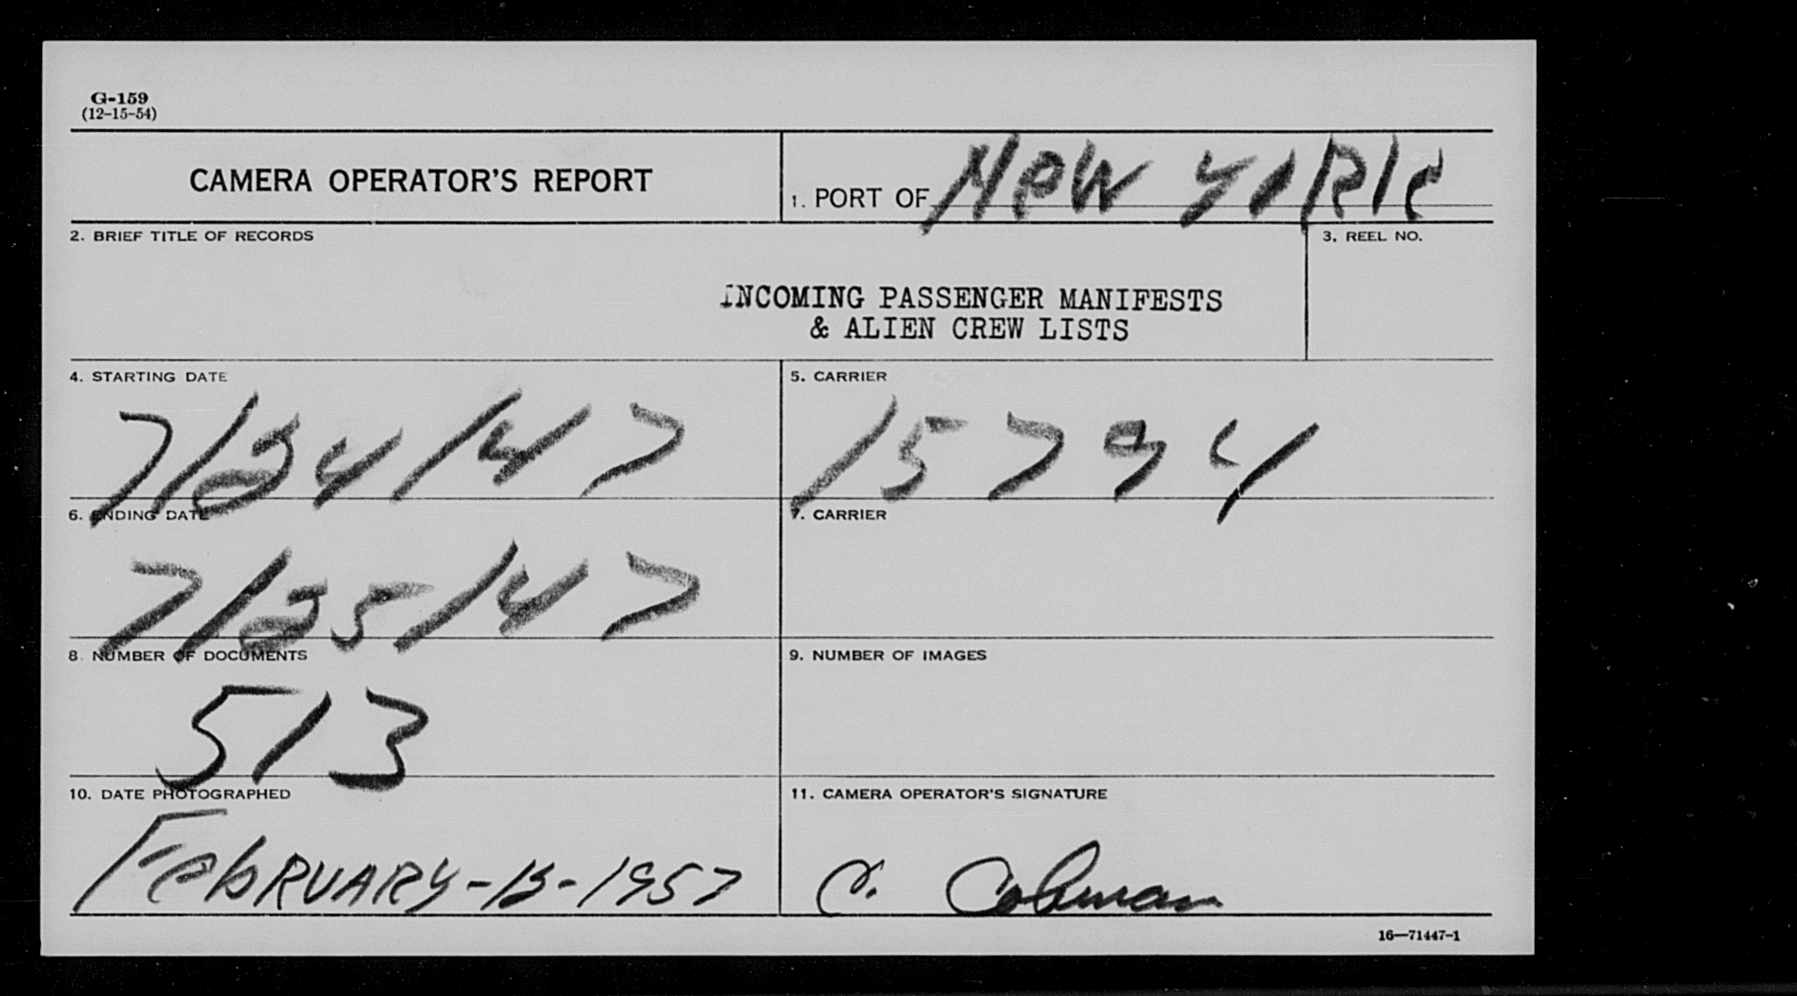 G-159
(12-15-54)
CAMERA OPERATOR'S REPORT
1. PORT OF NeW YORK
2. BRIEF TITLE OF RECORDS
3. REEL NO.
INCOMING PASSENGER MANIFESTS
& ALIEN CREW LISTS
4. STARTING DATE
5. CARRIER
7/24/47
15794
6. ENDING DATE
7. CARRIER
7/25/47
8. NUMBER OF DOCUMENTS
9. NUMBER OF IMAGES
513
10. DATE PHOTOGRAPHED
11. CAMERA OPERATOR'S SIGNATURE
FebRUARY-13-1957
C. Colman
16—71447-1